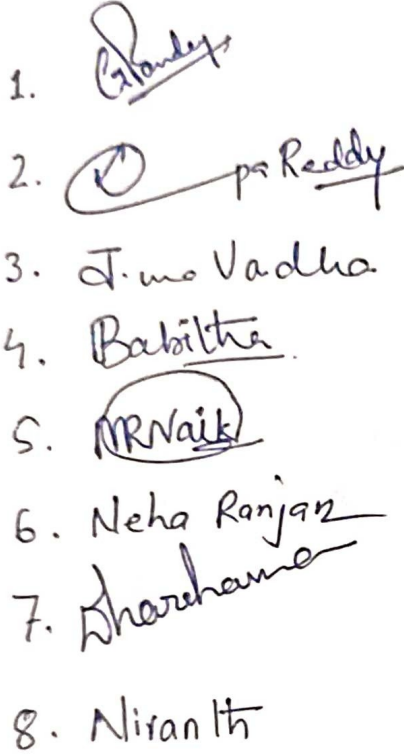 1. GPandey
2. pa Reddy
3. J. Vadha
4. Babitha
5. MRNaik
6. Neha Ranjan
7.
8. Niranth